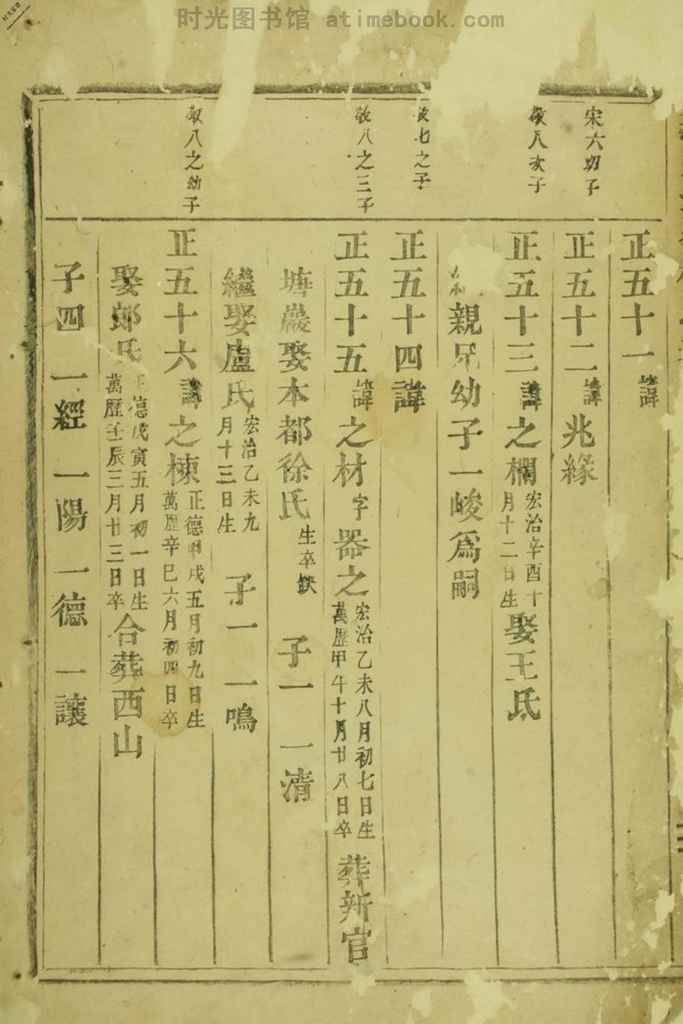 时光图书馆 atimebook.com
正五十一 諱
宋六幼子
正五十二 諱 兆緣
敬八次子
正五十三 諱 之欄 宏治辛酉十月十二日生 娶王氏
親兄幼子一峻爲嗣
敬七之子
正五十四 諱
敬八之三子
正五十五 諱 之材 字 器之 宏治乙未八月初七日生 萬曆甲午十月廿八日卒 葬新官
塘巖娶本都徐氏 生卒缺 子一 一清
繼娶盧氏 宏治乙未九月十三日生 子一 一鳴
敬八之幼子
正五十六 諱 之棟 正德戌五月初九日生 萬歷辛巳六月初四日卒
娶郎氏 正德戊寅五月初一日生 萬歷壬辰三月廿三日卒 合葬西山
子四 一經 一陽 一德 一讓